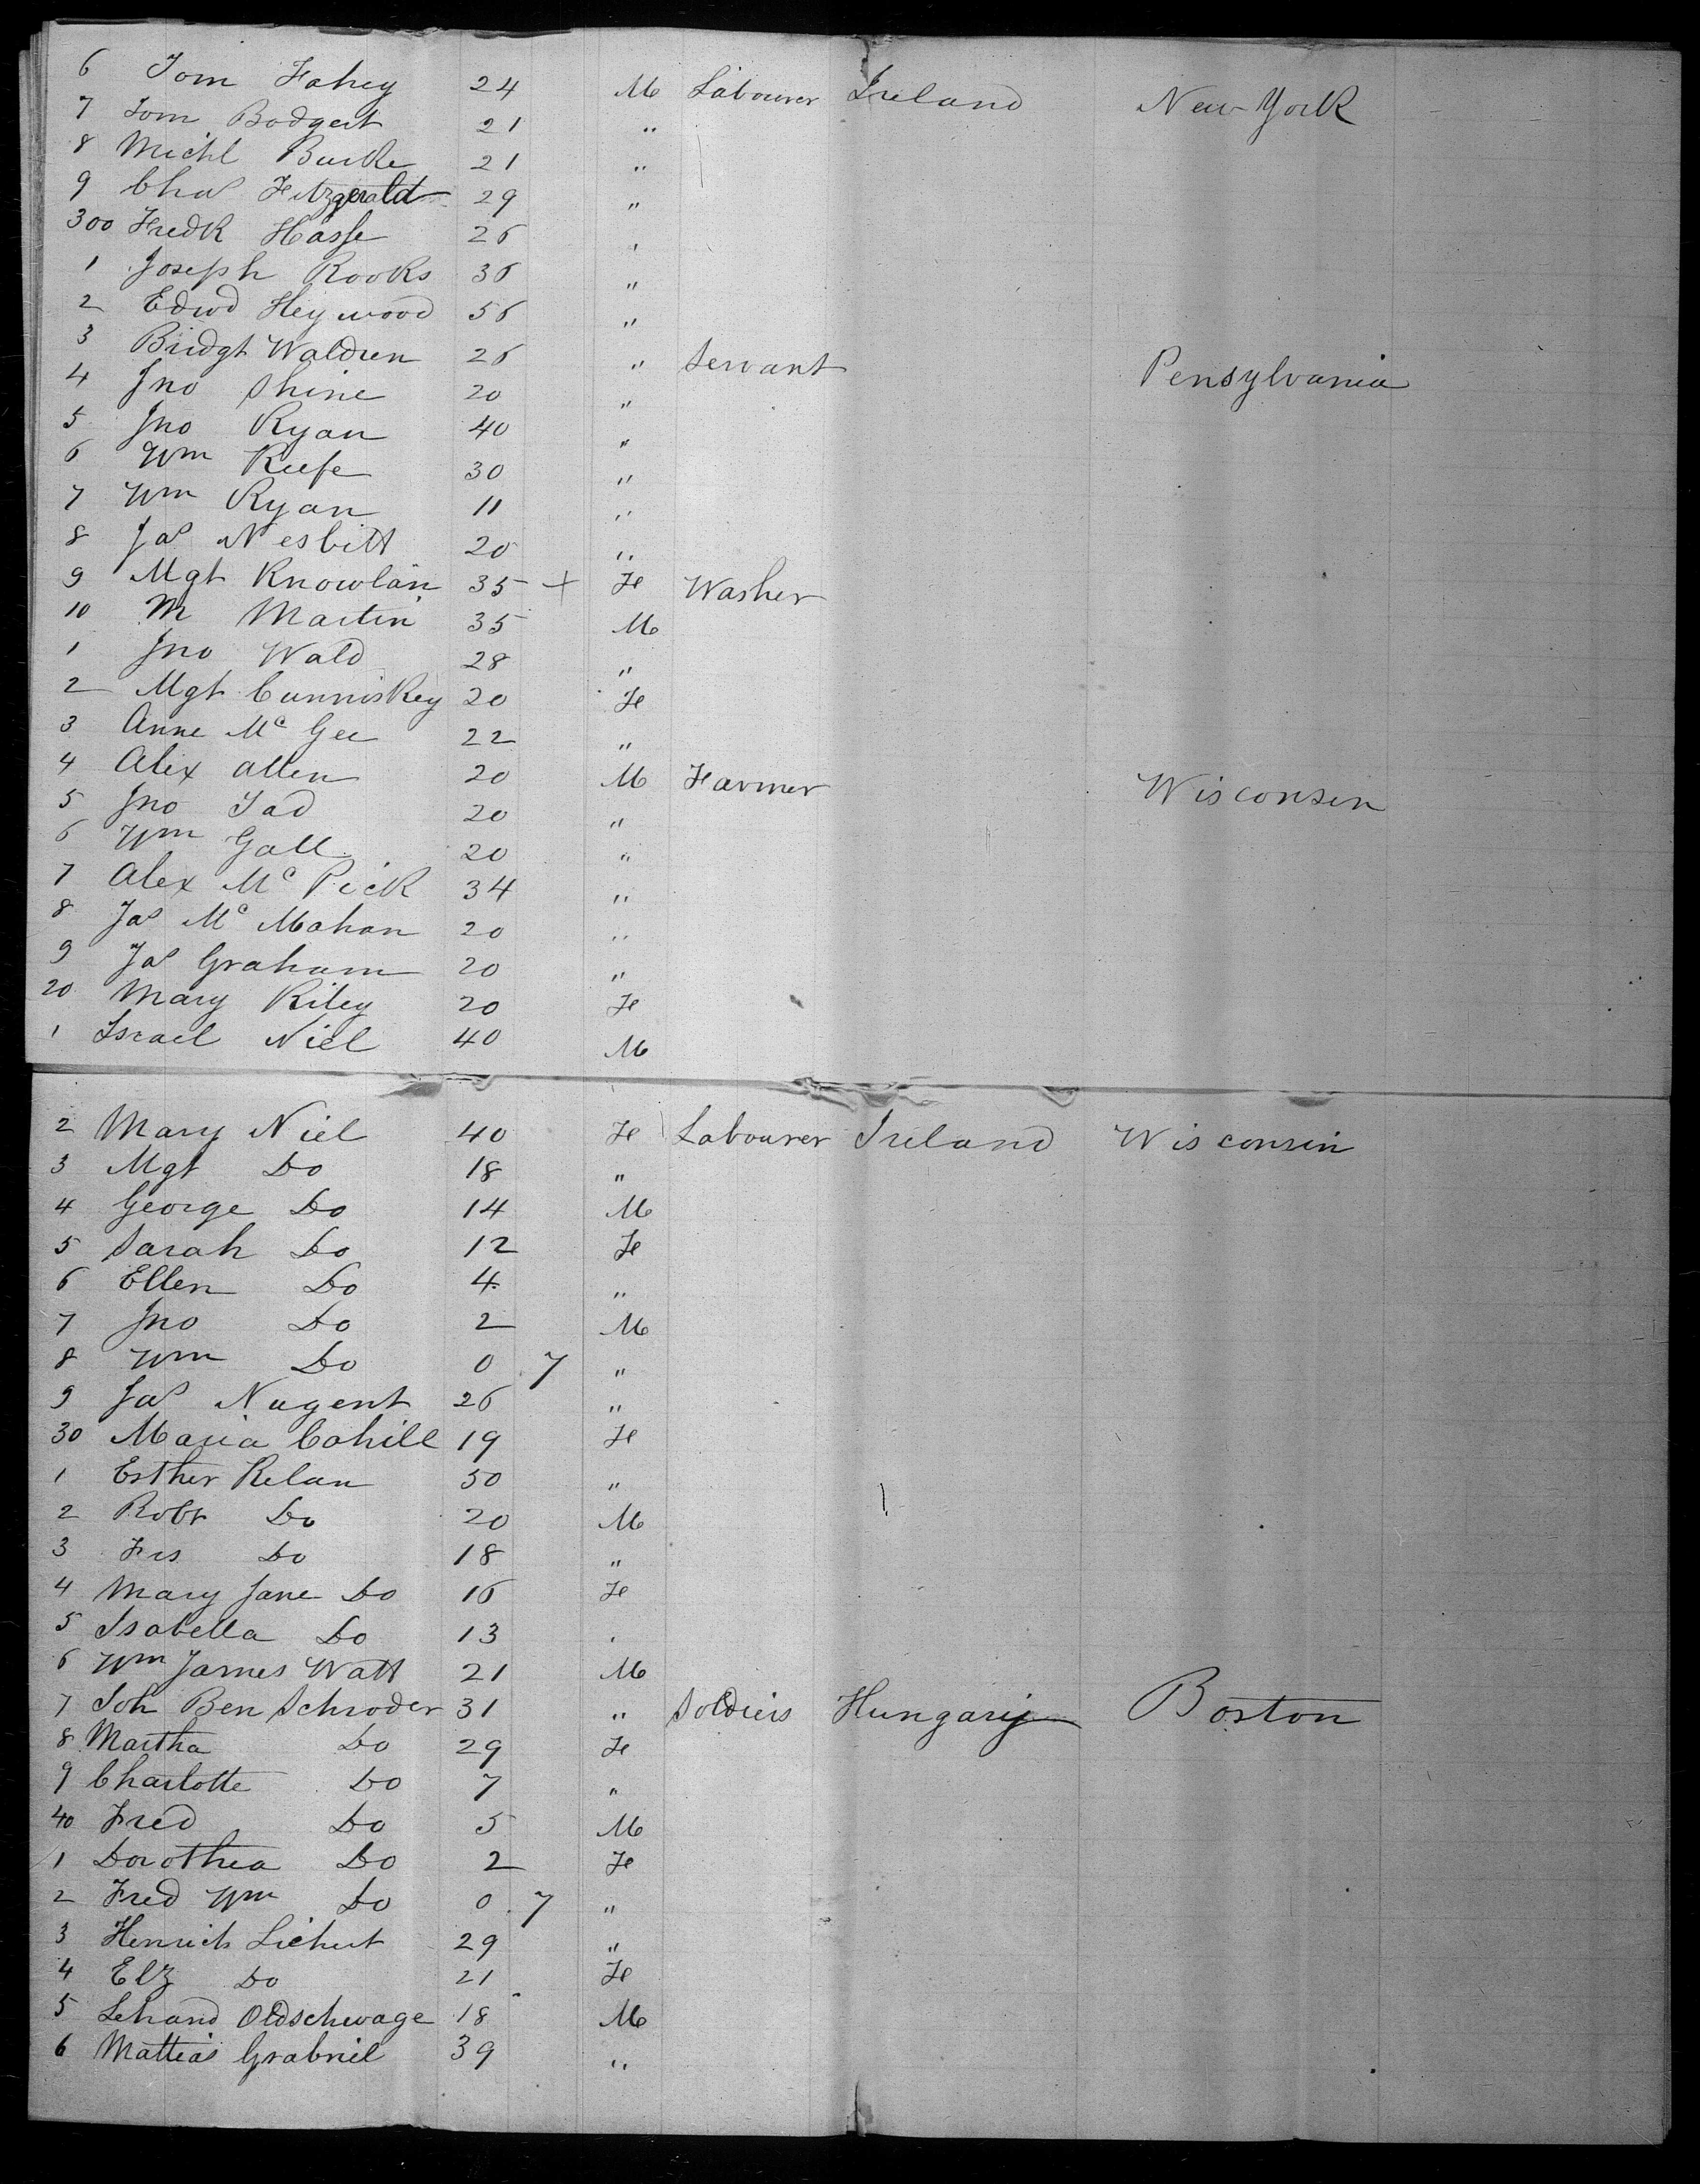 6 Tom Fahey 24 M Labourer Ireland New York
7 Tom Bodgert 21 "
8 Michl Burke 21 "
9 Chas Fitzgerald 29 "
300 Fredk Hasse 26 "
1 Joseph Rooks 36 "
2 Edwd Heywood 56 "
3 Bridgt Waldren 26 " Servant Pensylvania
4 Jno Shine 20 "
5 Jno Ryan 40 "
6 Wm Keefe 30 "
7 Wm Ryan 11 "
8 Jas Nesbitt 20 "
9 Mgt Knowlan 35 + Fe Washer
10 M Martin 35 M
1 Jno Wald 28 "
2 Mgt Cunniskey 20 Fe
3 Anne Mc Gee 22 "
4 Alex Allen 20 M Farmer Wisconsin
5 Jno Tad 20 "
6 Wm Gall 20 "
7 Alex Mc Pick 34 "
8 Jas Mc Mahan 20 "
9 Jas Graham 20 "
20 Mary Riley 20 Fe
1 Israel Niel 40 M
2 Mary Niel 40 Fe Labourer Ireland Wisconsin
3 Mgt Do 18 "
4 George Do 14 M
5 Sarah Do 12 Fe
6 Ellen Do 4 "
7 Jno Do 2 M
8 Wm Do 0 7 "
9 Jas Nugent 26 "
30 Maria Cahill 19 Fe
1 Esther Kelan 50 "
2 Robt Do 20 M
3 Frs Do 18 "
4 Mary Jane Do 16 Fe
5 Isabella Do 13 "
6 Wm James Watt 21 M
7 Joh Ben Schroder 31 " Soldiers Hungary Boston
8 Martha Do 29 Fe
9 Charlotte Do 7 "
40 Fred Do 5 M
1 Dorothea Do 2 Fe
2 Fred Wm Do 0 7 "
3 Henrich Lichert 29 "
4 Elz Do 21 Fe
5 Lehand Oldschwage 18 M
6 Mattias Grabriel 39 "